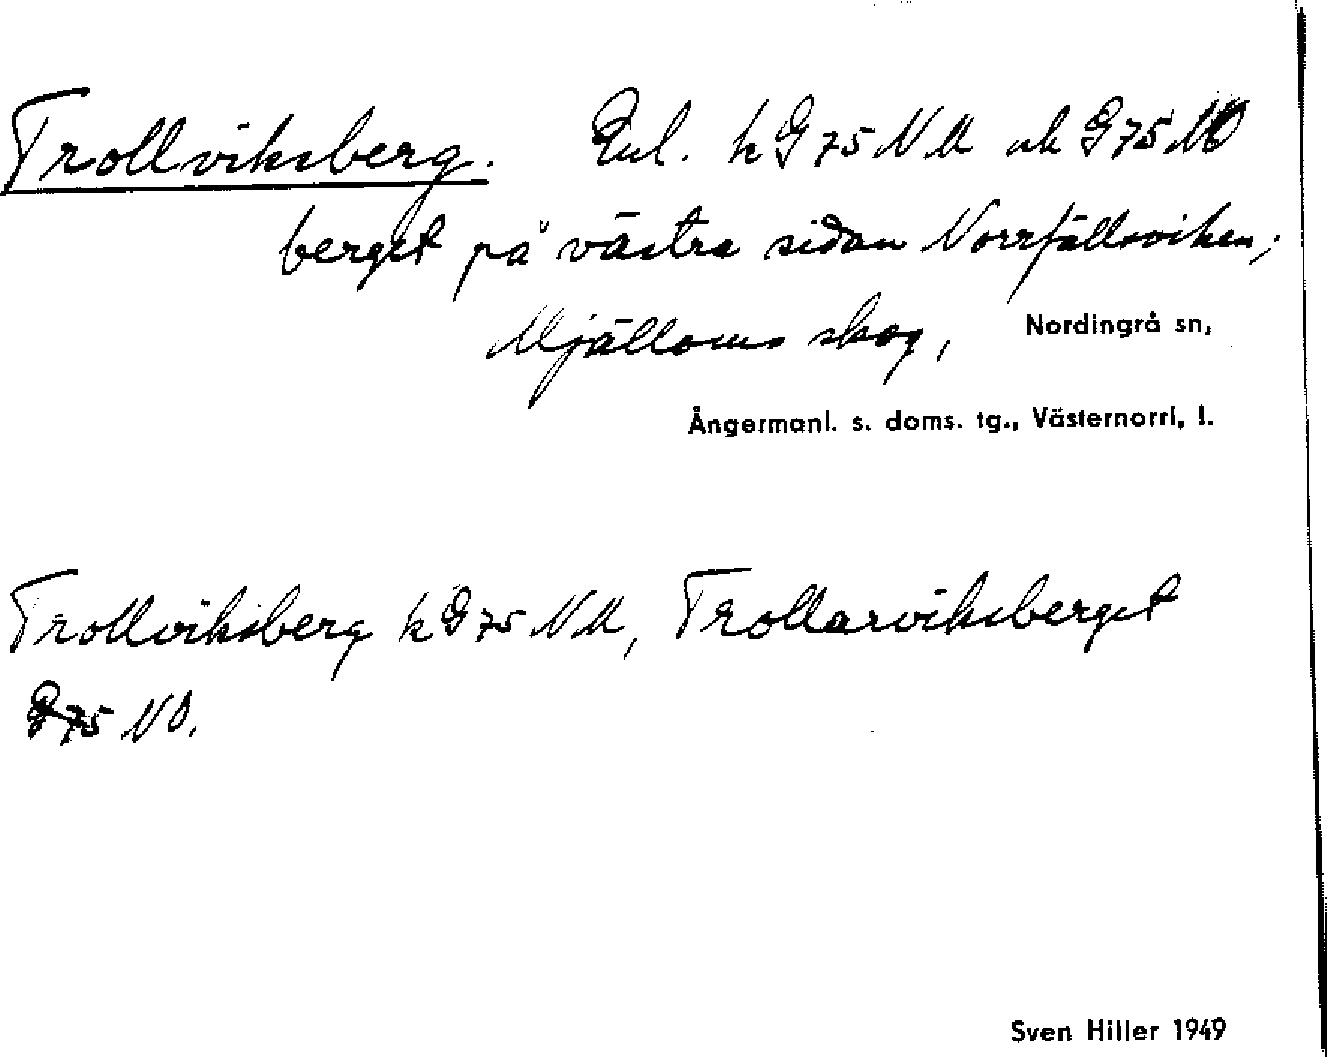 Trollviksberg. Enl. k G 75 NM och G 75 NO
berget på västra sidan Norrfällsviken;
Mjälloms skog, Nordingrå sn,
Ångermanl. s. doms. tg., Västernorrl, l.
Trollviksberg k G 75 NM, Trollarviksberget
G 75 NO.
Sven Hiller 1949